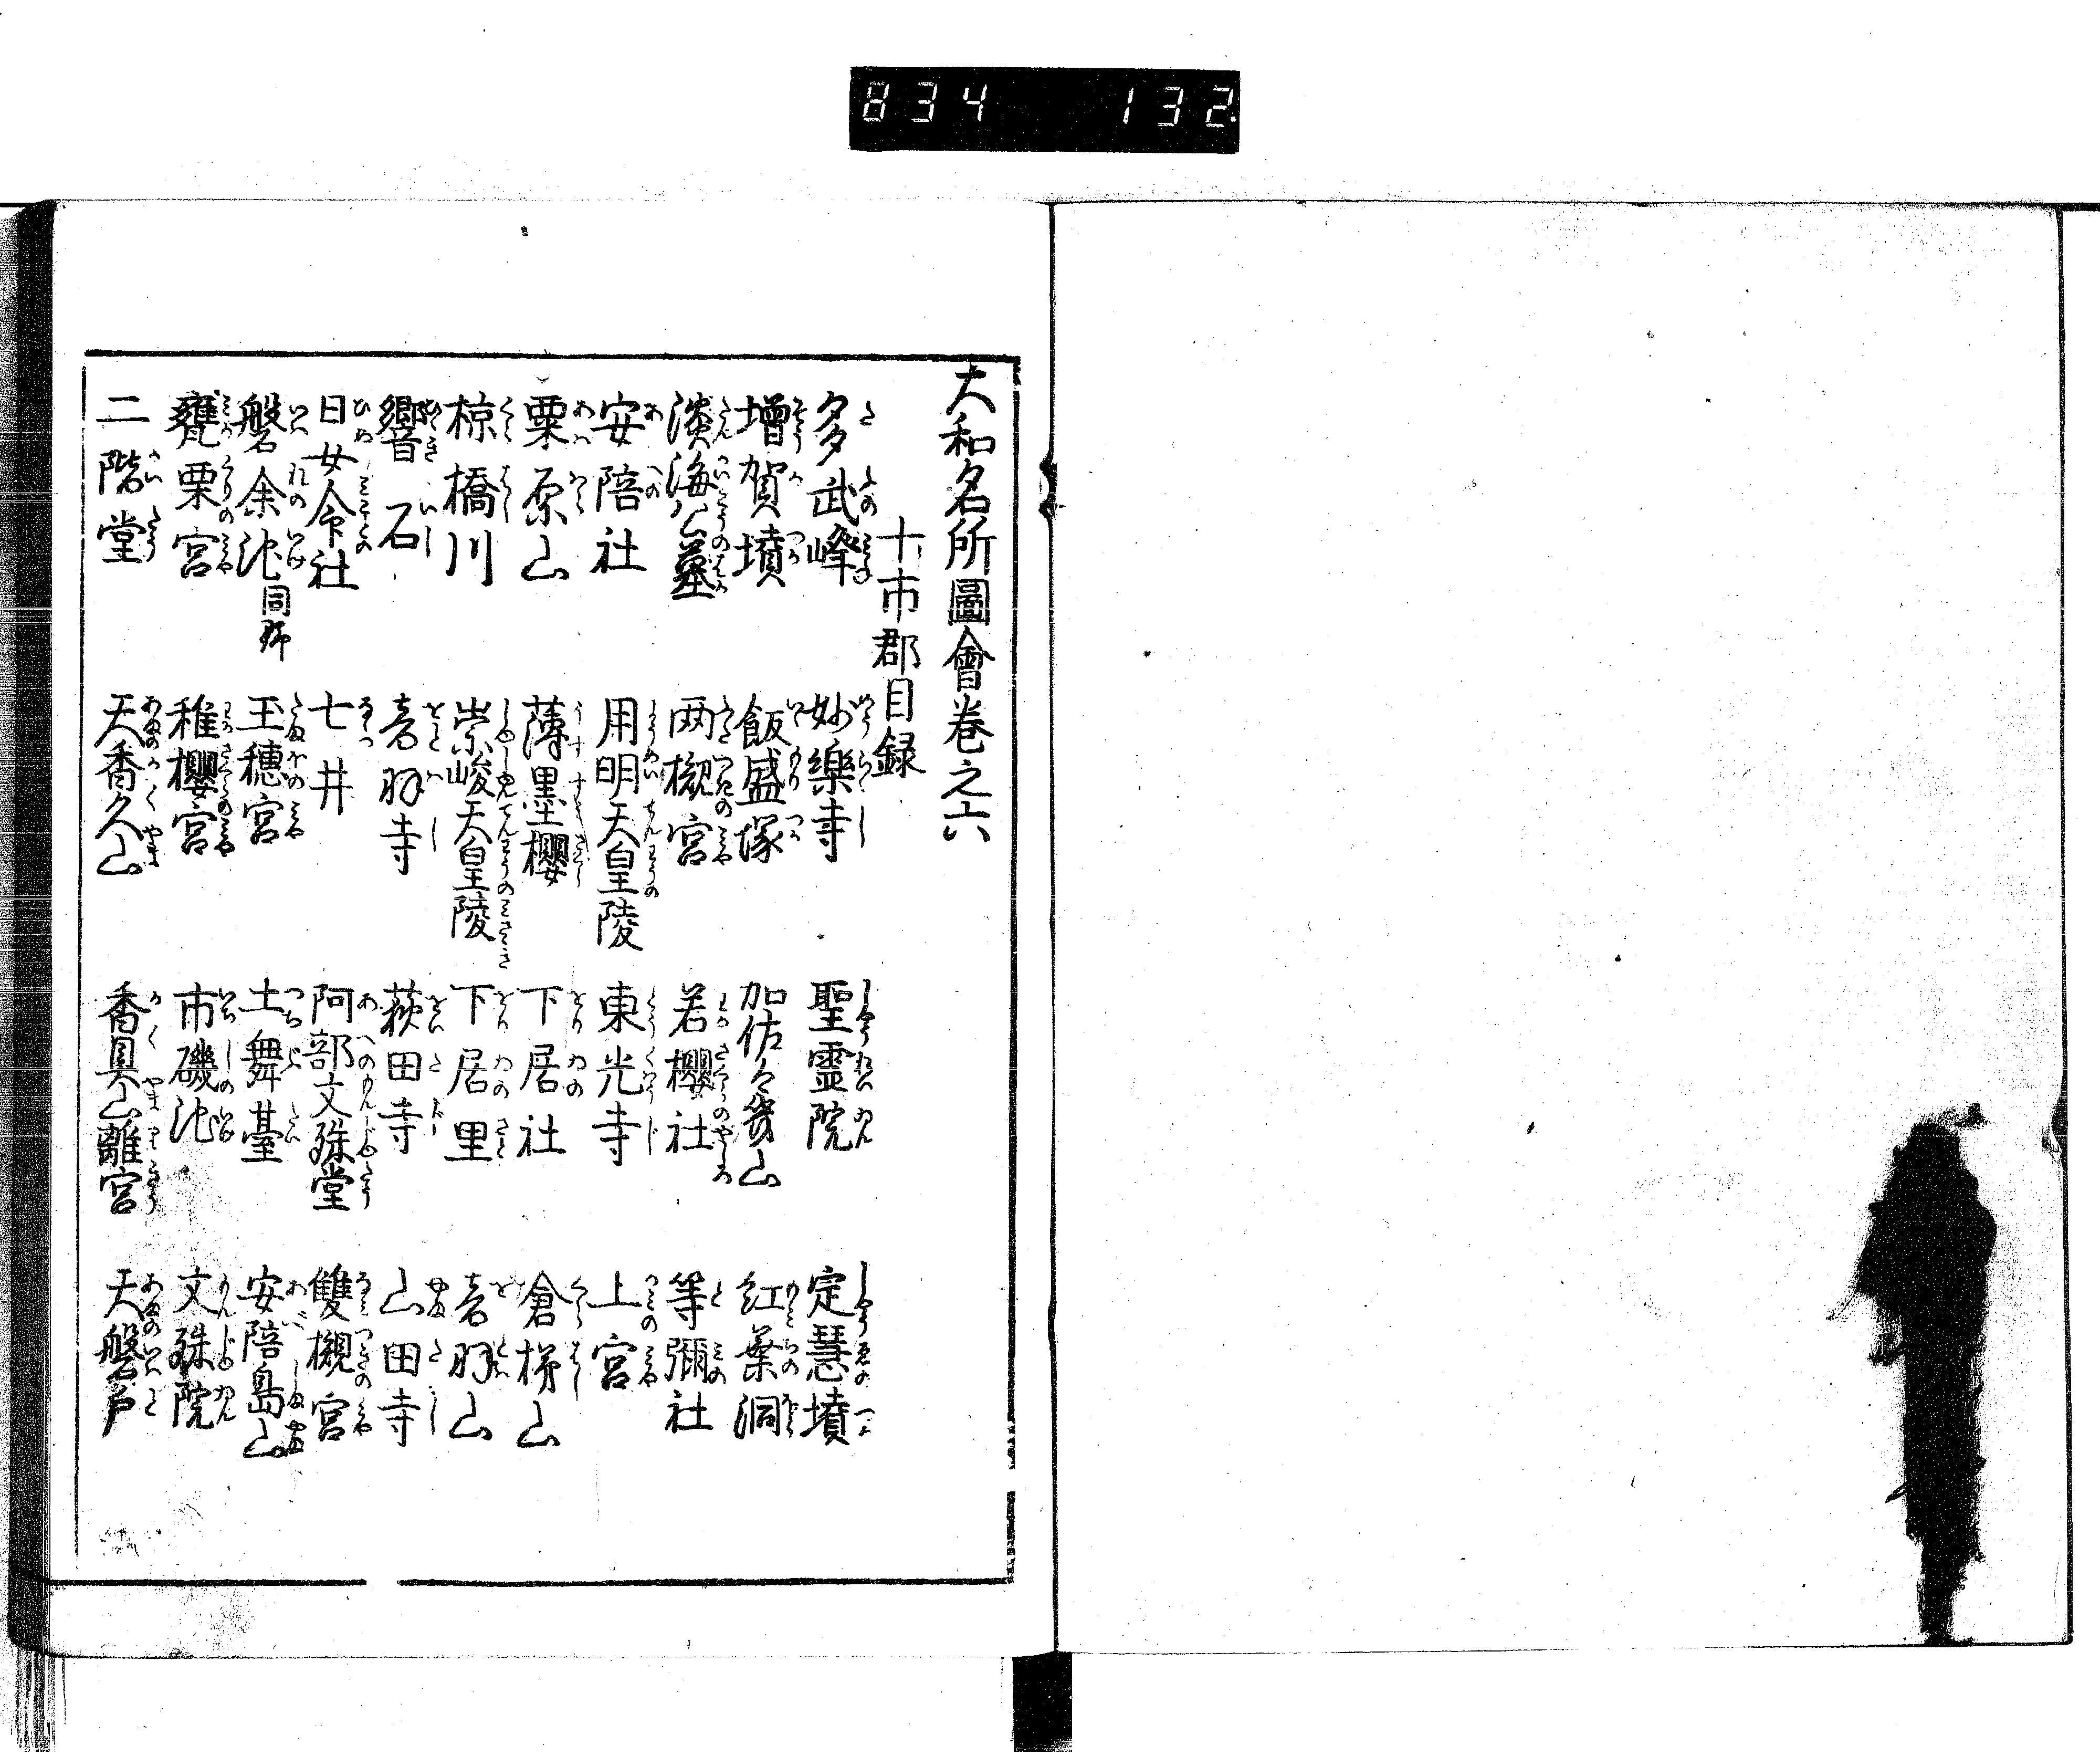 834 132
大和名所圖會卷之六
十市郡目録
多武峰 妙樂寺 聖靈院 定慧墳
增賀墳 飯盛塚 加佐々奈山 紅葉洞
淡海公墓 两槻宮 若櫻社 等彌社
安陪社 用明天皇陵 東光寺 上宮
粟原山 薄墨櫻 下居社 倉梯山
椋橋川 崇峻天皇陵 下居里 音羽山
響石 音羽寺 萩田寺 山田寺
日女命社 七井 阿部文殊堂 雙槻宮
磐余池 同野 玉穗宮 土舞臺 安陪島山
甕栗宮 稚櫻宮 市磯池 文殊院
二階堂 天香久山 香具山離宮 天磐戸